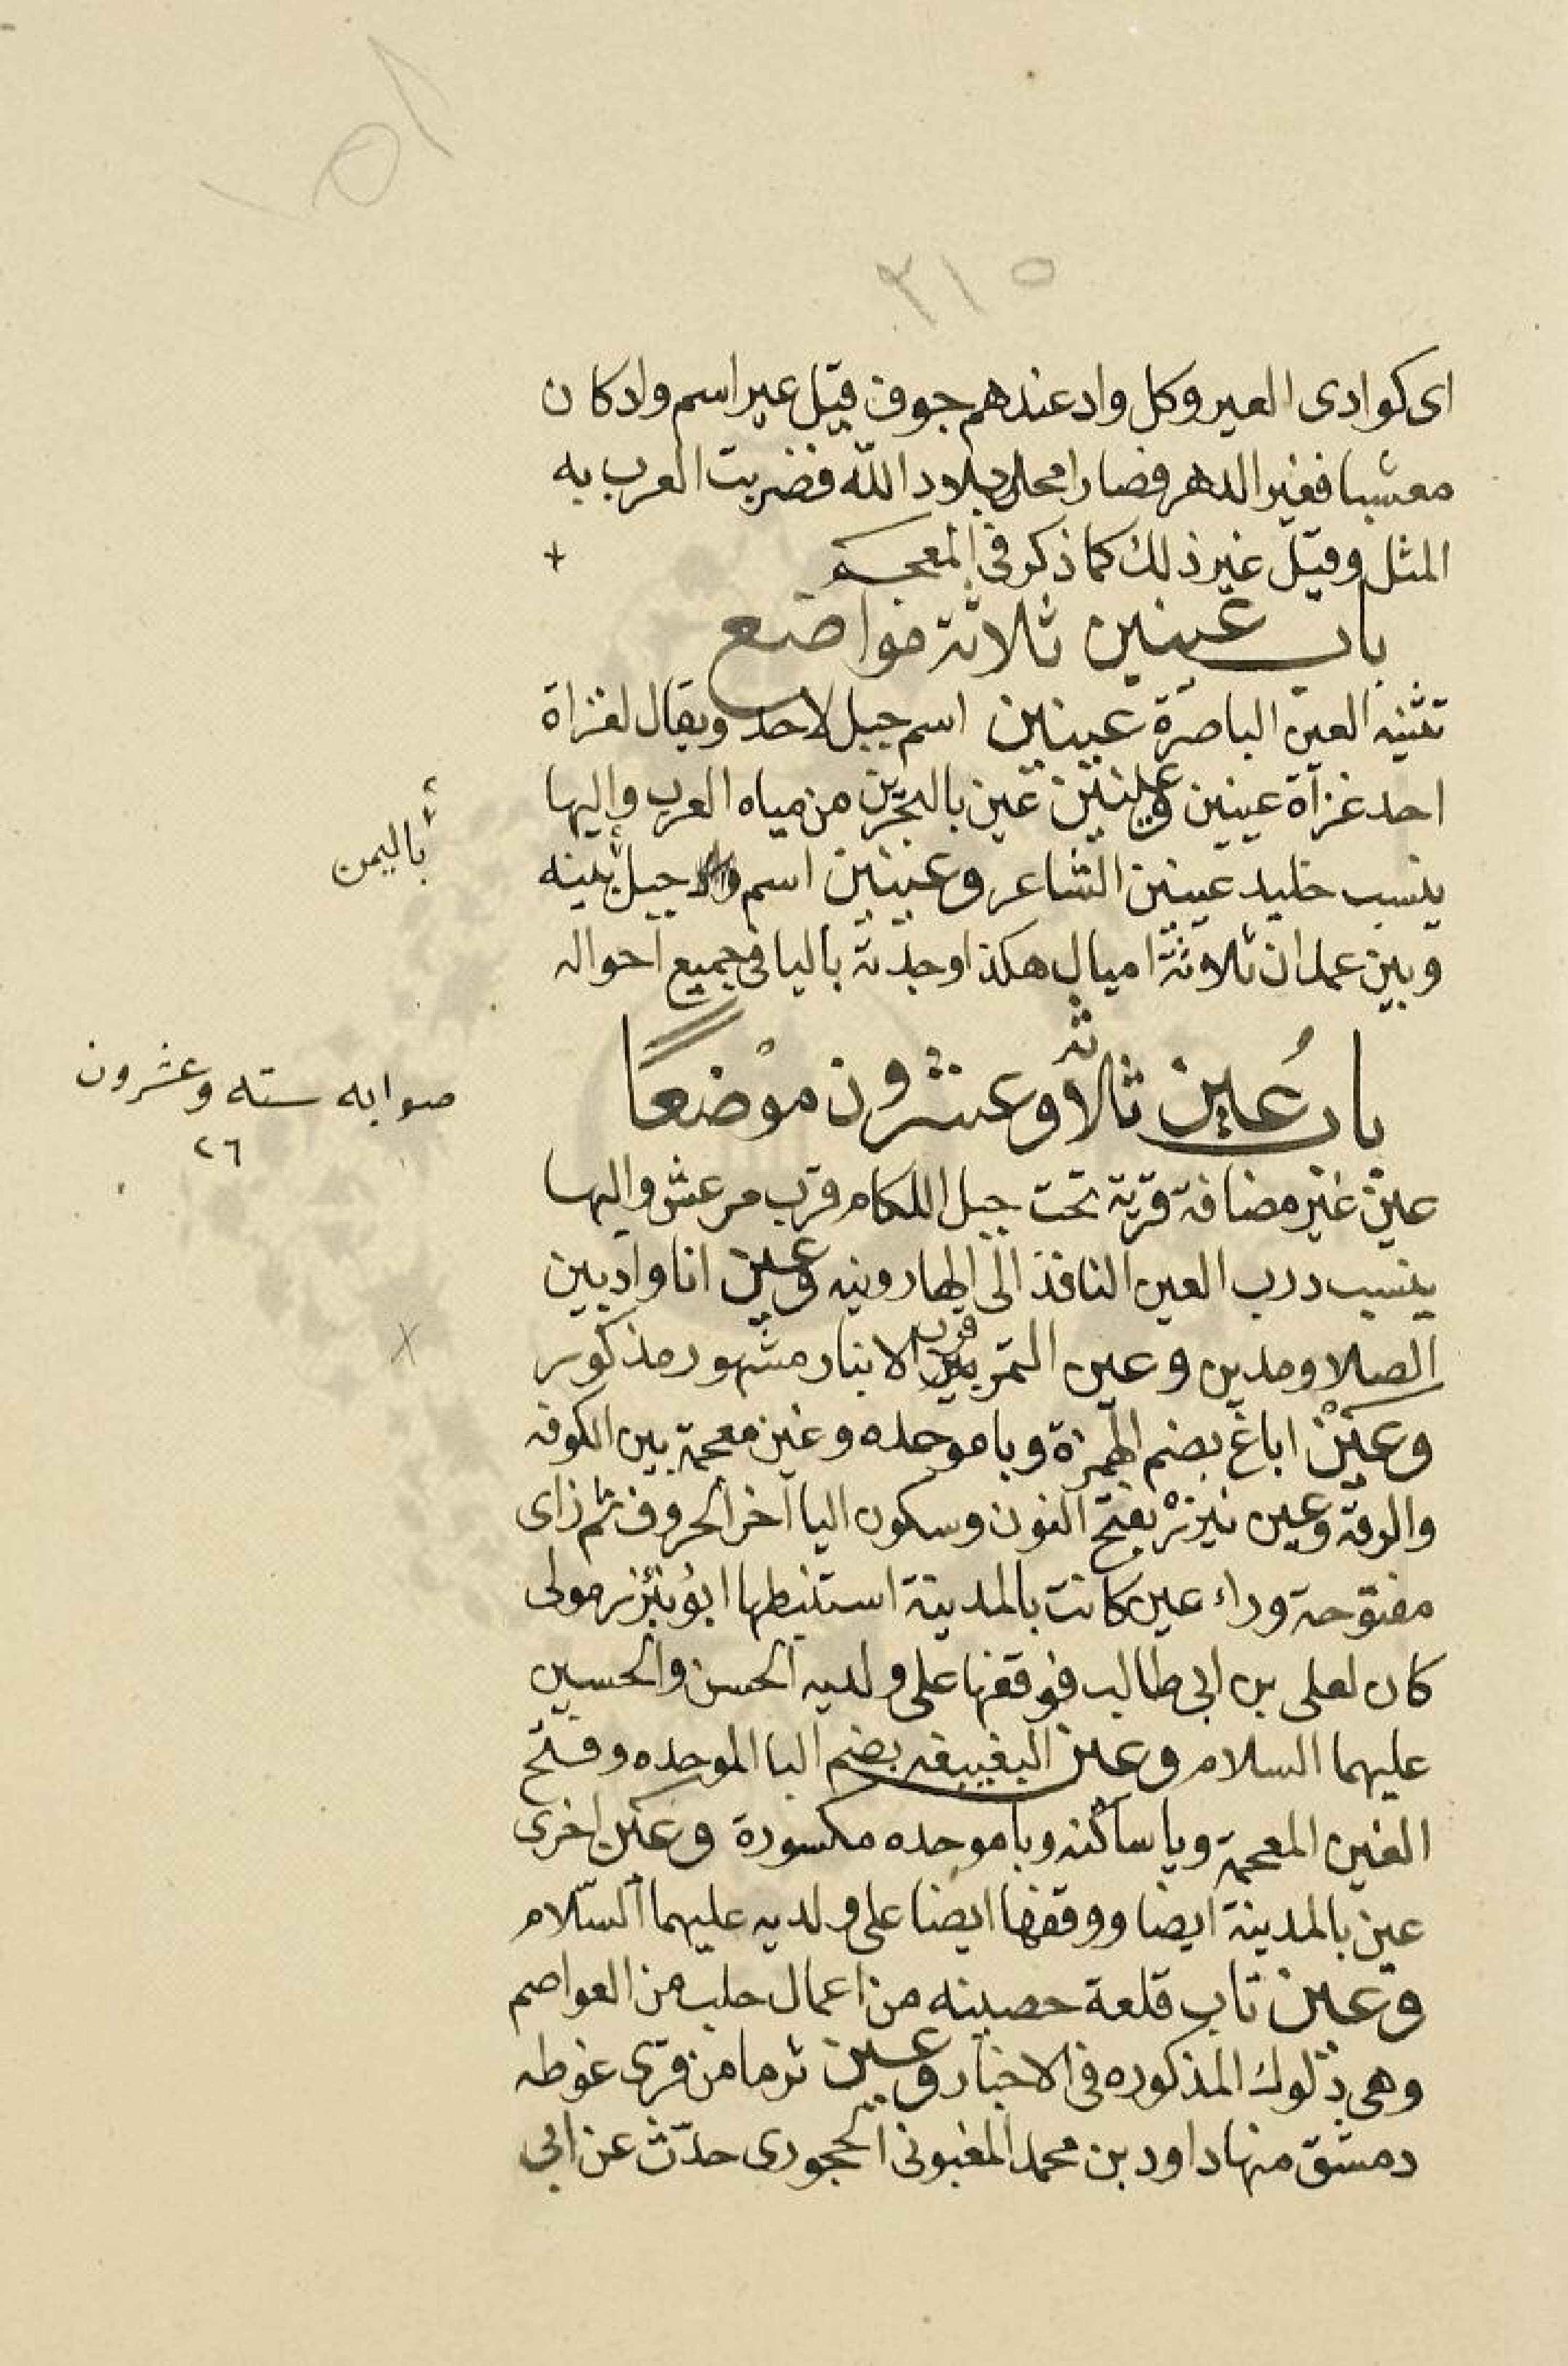 ٣١٥
اى كوادى العير وكل واد عندهم جوف قيل عير اسم واد كان
معشبا فغير الدهر فصار امحل بلاد الله فضربت العرب به
المثل وقيل غير ذلك كما ذكر فى المعجم
باب عينين ثلاثة مواضع
تثنيه العين الباصرة عينين اسم جبل لاحد ويقال لغزاة
احد غزاة عينين وعينين عين بالبحرين من مياه العرب واليها
ينسب خليد عينين الشاعر وعينين اسم جبل بينه
باليمن
وبين عمدان ثلاثة اميال هكذا وجدته باليا فى جميع احواله
باب عين ثلاثة وعشرون موضعًا
صوابه سته وعشرون
٢٦
عين غير مضافة قرية تحت جبل اللكام قرب مرعش واليها
ينسب درب العين النافذ الى الهارونيه وعين انا واد بين
الصلا ومدين وعين التمر قرب الانبار مشهور مذكور
وعين اباغ بضم الهمزة وبا موحده وغين معجمة بين الكوفه
والرقة وعين نيزر بفتح النون وسكون اليا آخر الحروف ثم زاى
مفتوحة وراء عين كانت بالمدينة استنبطها ابو نيزر مولى
كان لعلى بن ابى طالب فوقفها على ولديه الحسن والحسين
عليهما السلام وعين البغيبغه بضم البا الموحده وفتح
الغين المعجمة ويا ساكنه وبا موحده مكسورة وغين اخرى
عين بالمدينة ايضا ووقفها ايضا على ولديه عليهما السّلام
وعين تاب قلعة حصينه من اعمال حلب من العواصم
وهى دلوك المذكوره فى الاخبار وعين ثرما من قرى غوطه
دمشق منها داود بن محمد المغبونى الحجورى حدّث عن ابى